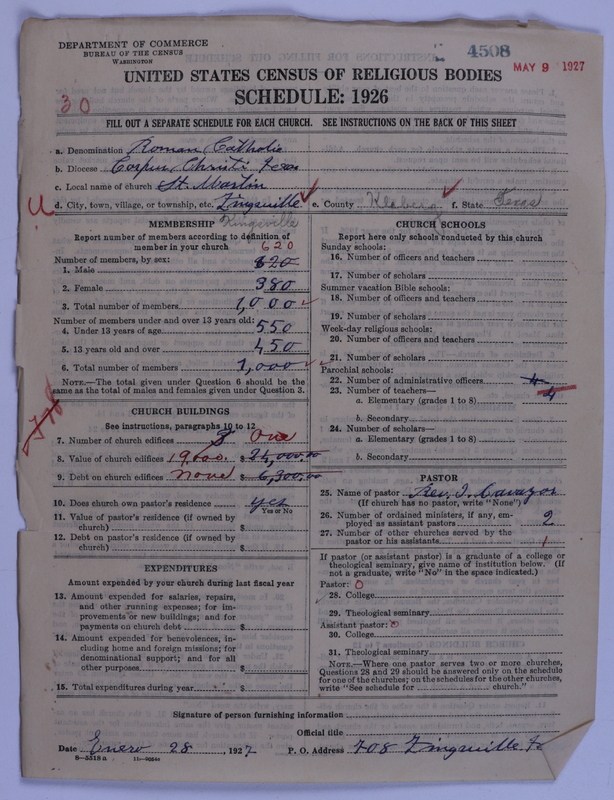 DEPARTMENT OF COMMERCE
BUREAU OF THE CENSUS
WASHINGTON
4508
MAY 9 1927
UNITED STATES CENSUS OF RELIGIOUS BODIES
SCHEDULE: 1926
30
FILL OUT A SEPARATE SCHEDULE FOR EACH CHURCH. SEE INSTRUCTIONS ON THE BACK OF THIS SHEET
a. Denomination Roman Catholic
b. Diocese Corpus Christi Texas
c. Local name of church St. Martin
d. City, town, village, or township, etc. Kingsville e. County Kleberg f. State Texas
Kingsville
MEMBERSHIP
Report number of members according to definition of
member in your church
620
Number of members, by sex:
1. Male 620
2. Female 380
3. Total number of members 1,000
Number of members under and over 13 years old:
4. Under 13 years of age 550
5. 13 years old and over 450
6. Total number of members 1,000
NOTE.—The total given under Question 6 should be the
same as the total of males and females given under Question 3.
CHURCH BUILDINGS
See instructions, paragraphs 10 to 12
7. Number of church edifices One
8. Value of church edifices $
9. Debt on church edifices none $ 6,300.00
10. Does church own pastor's residence yes
Yes or No
11. Value of pastor's residence (if owned by
church) $
12. Debt on pastor's residence (if owned by
church) $
EXPENDITURES
Amount expended by your church during last fiscal year
13. Amount expended for salaries, repairs,
and other running expenses; for im-
provements or new buildings; and for
payments on church debt $
14. Amount expended for benevolences, in-
cluding home and foreign missions; for
denominational support; and for all
other purposes $
15. Total expenditures during year $
CHURCH SCHOOLS
Report here only schools conducted by this church
Sunday schools:
16. Number of officers and teachers
17. Number of scholars
Summer vacation Bible schools:
18. Number of officers and teachers
19. Number of scholars
Week-day religious schools:
20. Number of officers and teachers
21. Number of scholars
Parochial schools:
22. Number of administrative officers 4
23. Number of teachers— 4
a. Elementary (grades 1 to 8)
b. Secondary
24. Number of scholars—
a. Elementary (grades 1 to 8)
b. Secondary
PASTOR
25. Name of pastor Rev. I. Cavazos
(If church has no pastor, write "None")
26. Number of ordained ministers, if any, em-
ployed as assistant pastors 2
27. Number of other churches served by the
pastor or his assistants 1
If pastor (or assistant pastor) is a graduate of a college or
theological seminary, give name of institution below. (If
not a graduate, write "No" in the space indicated.)
Pastor: 0
28. College
29. Theological seminary
Assistant pastor: 0
30. College
31. Theological seminary
NOTE.—Where one pastor serves two or more churches,
Questions 28 and 29 should be answered only on the schedule
for one of the churches; on the schedules for the other churches,
write "See schedule for church."
Signature of person furnishing information
Official title
Date Enero 28, 1927 P. O. Address 708 Kingsville Te
8—5518a